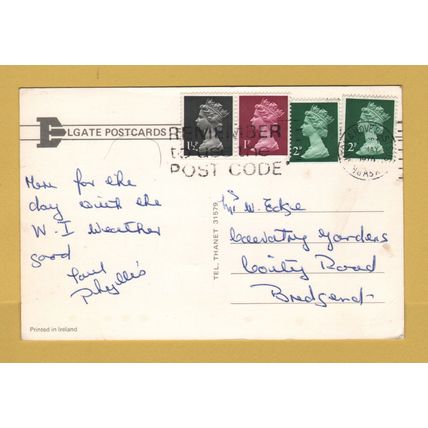 ELGATE POSTCARDS
REMEMBER
to use the
POST CODE
1½P
1P
2P
2P
Here for the
day with the
W.I Weather
good
Paul
Phyllis
TEL. THANET 31579
Mrs W. Edge
Coventry Gardens
Coity Road
Bridgend
Printed in Ireland